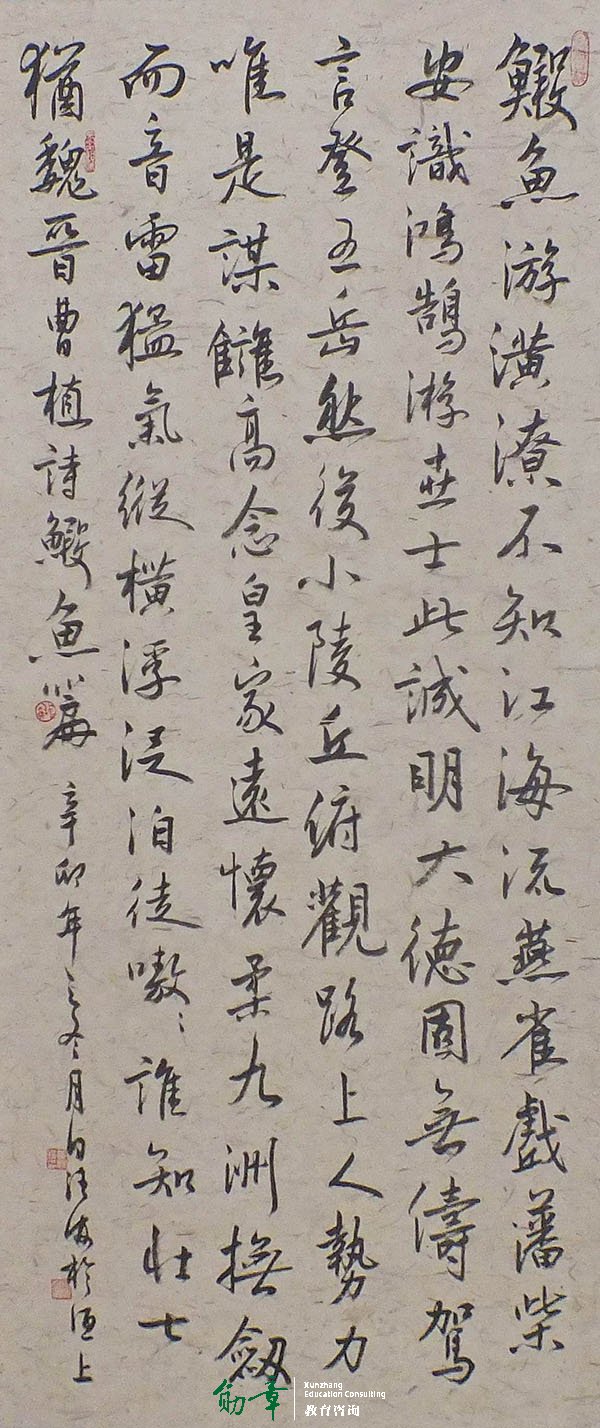 鰕魚游潢潦不知江海流燕雀戲藩柴
安識鴻鵠游世士此誠明大德固無儔駕
言登五岳然後小陵丘俯觀路上人勢力
唯是謀讎高念皇家遠懷柔九洲撫劔
而音雷猛氣縱橫浮泛泊徒嗷〻誰知壯士
猶魏晉曹植詩鰕魚篇
辛卯年之冬月於上
勛章
Xunzhang
Education Consulting
教育咨询